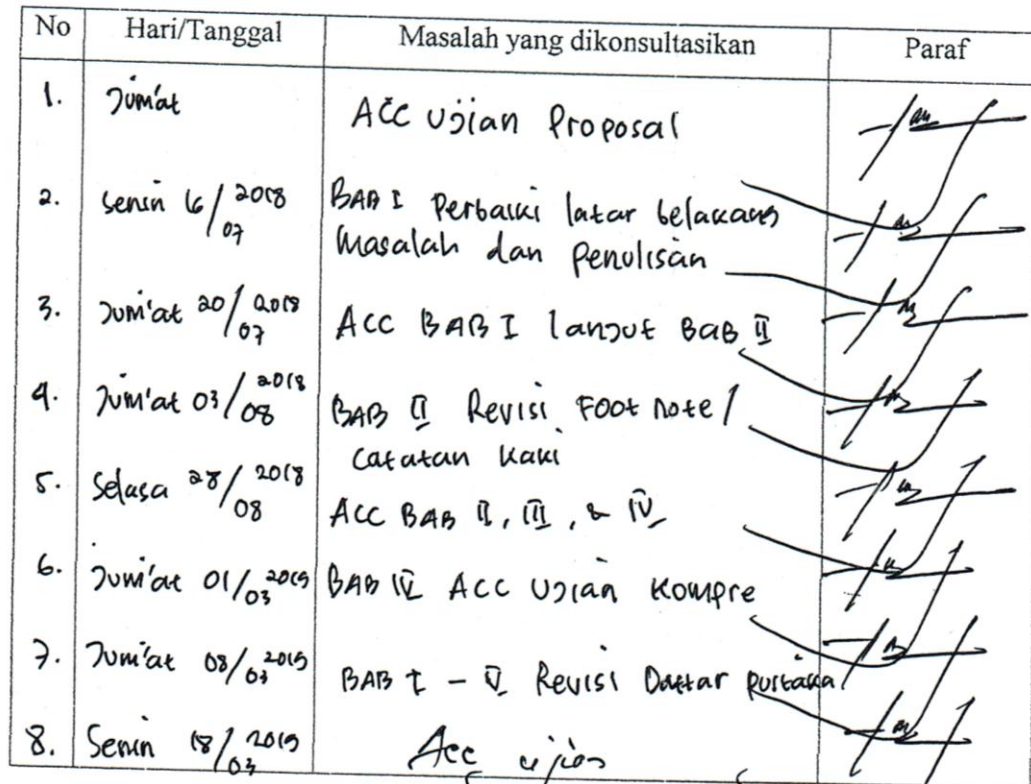 No Hari/Tanggal Masalah yang dikonsultasikan Paraf
1. Jum'at ACC Ujian Proposal
2. Senin 16/07 2018 BAB I Perbaiki latar belakang
Masalah dan Penulisan
3. Jum'at 20/07 2018 ACC BAB I lanjut BAB II
4. Jum'at 03/08 2018 BAB II Revisi Foot Note /
Catatan Kaki
5. Selasa 28/08 2018 ACC BAB II, III, & IV
6. Jum'at 01/03 2019 BAB IV ACC Ujian Kompre
7. Jum'at 08/03 2019 BAB I - V Revisi Daftar Pustaka
8. Senin 18/03 2019 Acc ujian